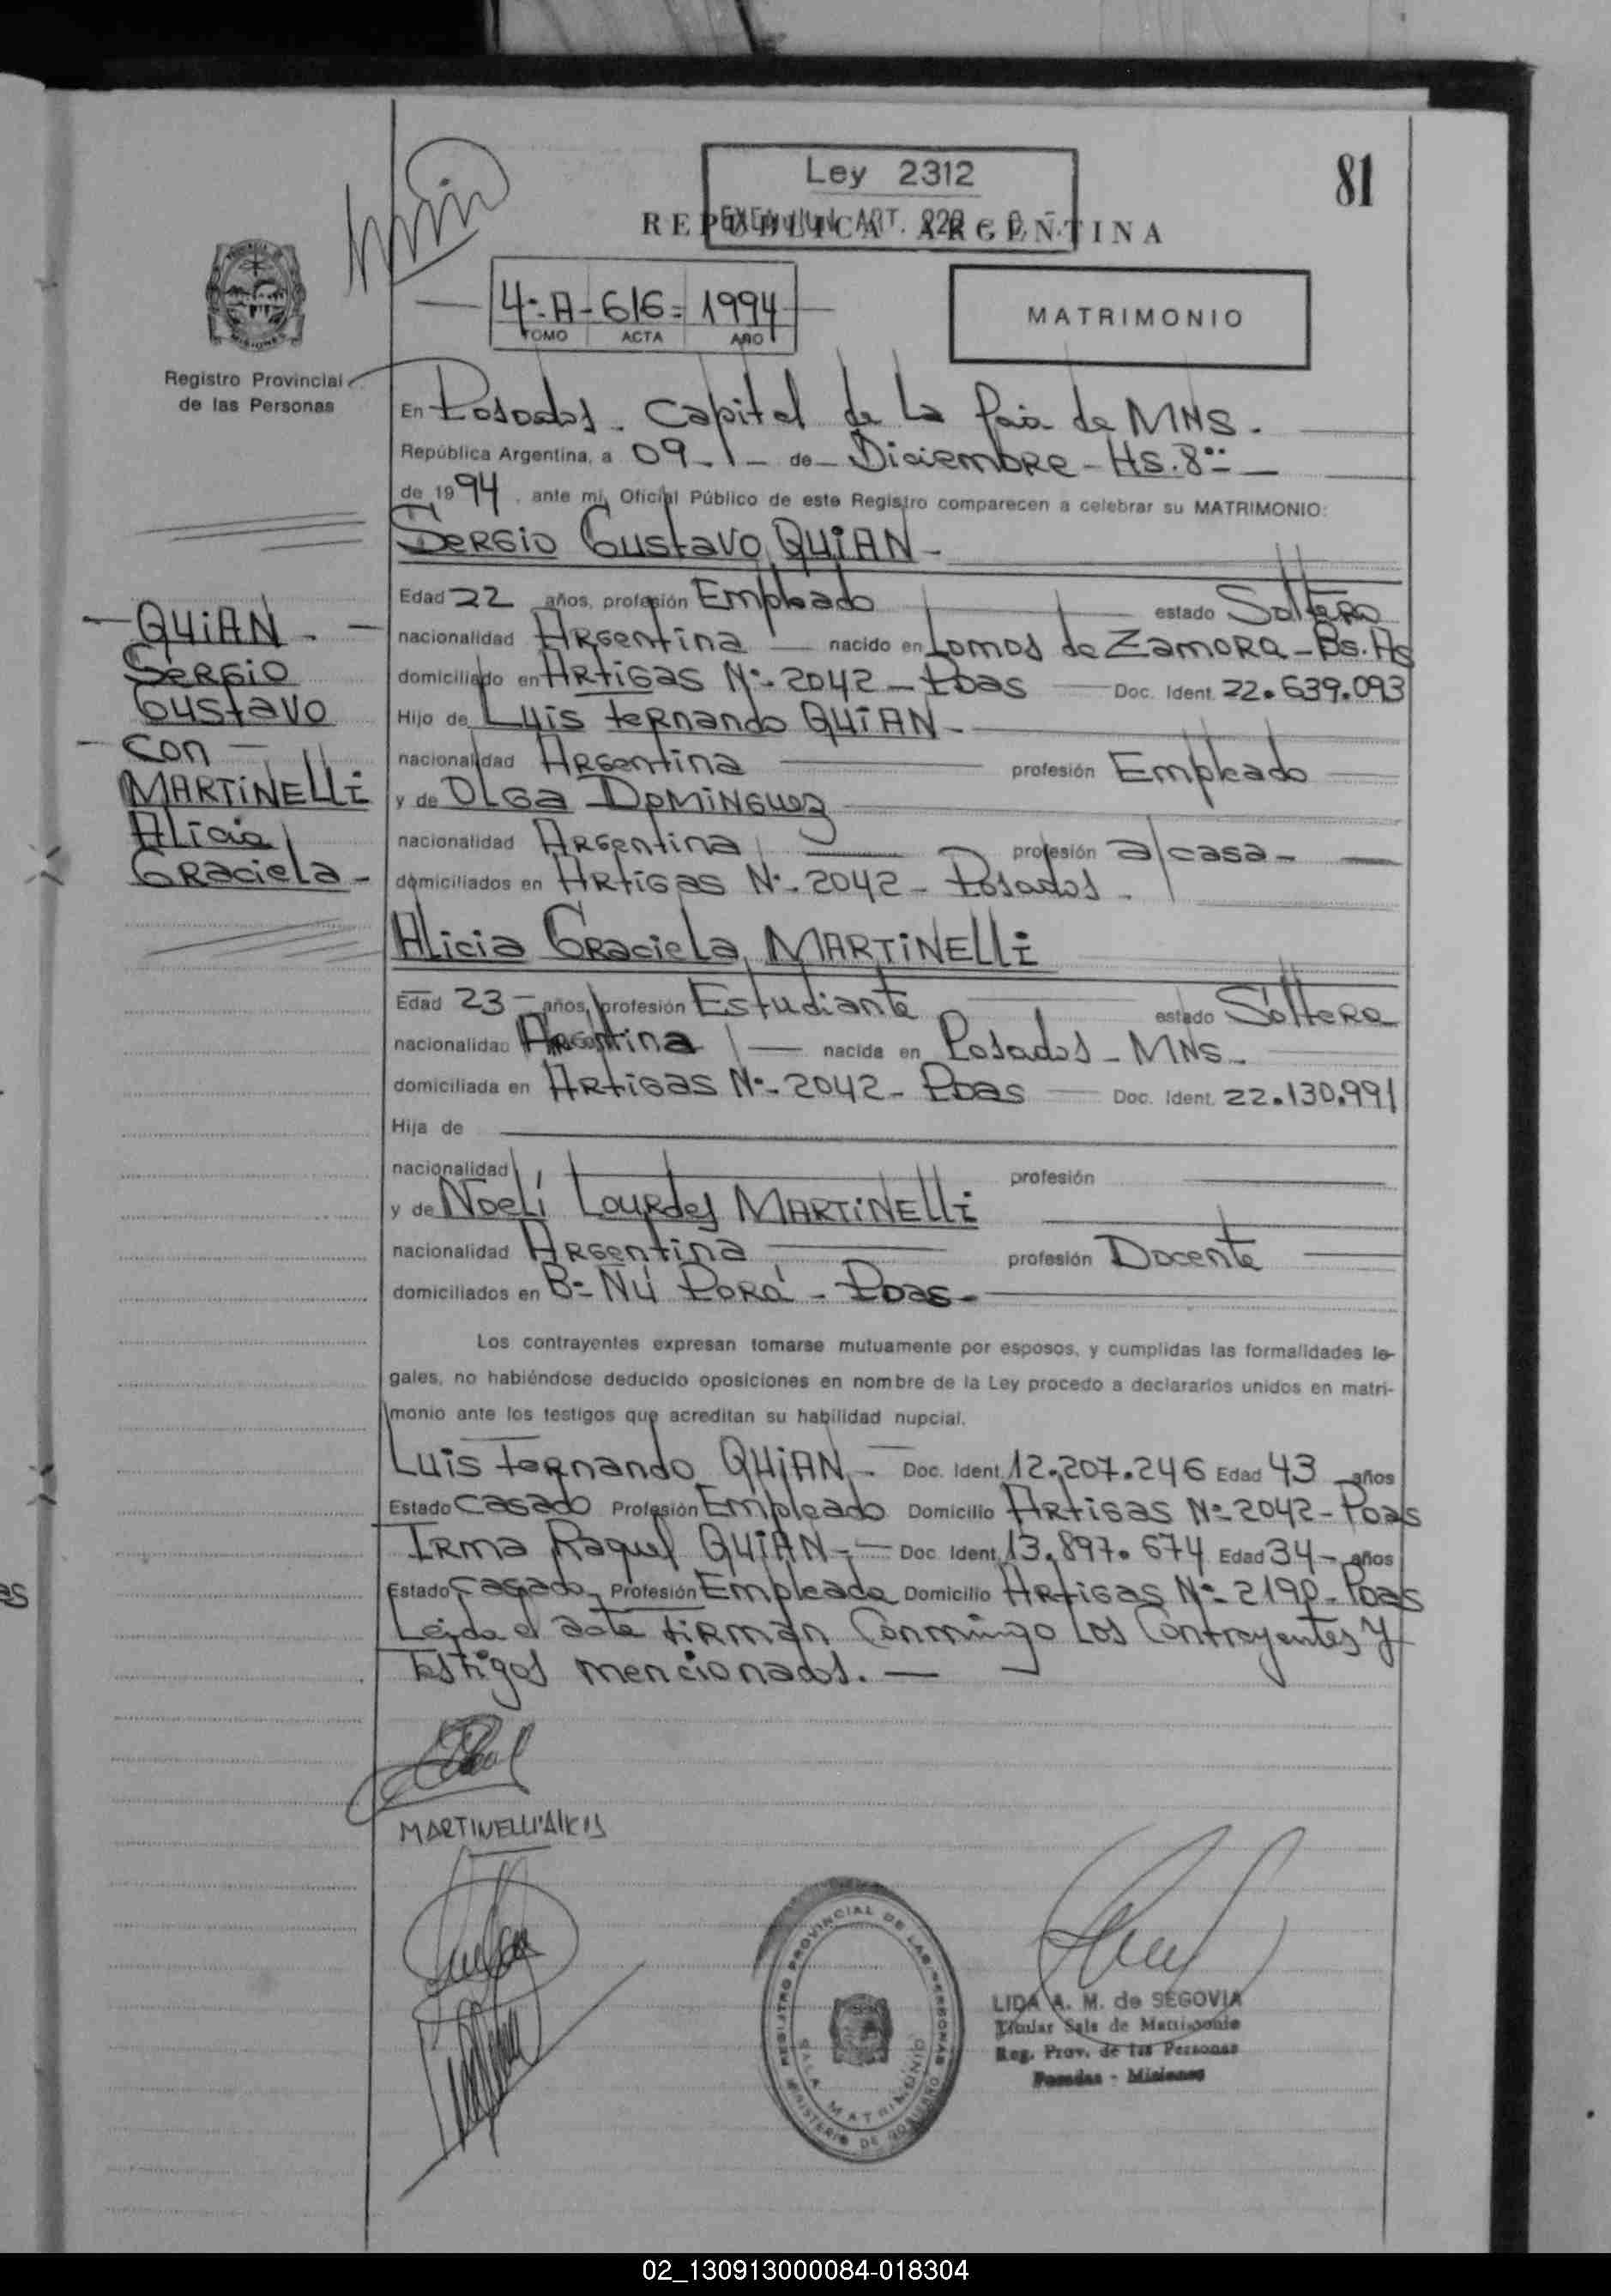 81
Ley 2312
EXENCION ART. 229 C. P.
REPUBLICA ARGENTINA
4º A - 616 = 1994
TOMO ACTA AÑO
MATRIMONIO
Registro Provincial
de las Personas
En Posadas. Capital de la Pcia de MNS.
República Argentina, a 09 - de Diciembre - Hs. 8
de 1994, ante mi, Oficial Público de este Registro comparecen a celebrar su MATRIMONIO:
Sergio Gustavo QUIAN -
Edad 22 años, profesión Empleado estado Soltero
nacionalidad Argentina nacido en Lomas de Zamora - Bs. As
domiciliado en Artigas Nº 2042 - Pdas Doc. Ident. 22.639.093
Hijo de Luis Fernando QUIAN -
nacionalidad Argentina profesión Empleado
y de Olga DOMINGUEZ
nacionalidad Argentina profesión a/casa -
domiciliados en Artigas Nº 2042 - Posadas -
QUIAN -
Sergio
Gustavo
- con -
MARTINELLI
Alicia
Graciela -
Alicia Graciela MARTINELLI
Edad 23 - años, profesión Estudiante estado Soltera
nacionalidad Argentina nacida en Posadas - MNS -
domiciliada en Artigas Nº - 2042 - Pdas Doc. Ident. 22.130.991
Hija de
nacionalidad profesión
y de Noelí Lourdes MARTINELLI
nacionalidad Argentina profesión Docente
domiciliados en Bº Ñú Porá - Pdas -
Los contrayentes expresan tomarse mutuamente por esposos, y cumplidas las formalidades le-
gales, no habiéndose deducido oposiciones en nombre de la Ley procedo a declararlos unidos en matri-
monio ante los testigos que acreditan su habilidad nupcial.
Luis Fernando QUIAN - Doc. Ident. 12.207.246 Edad 43 años
Estado Casado Profesión Empleado Domicilio Artigas Nº 2042 - Pdas
Irma Raquel QUIAN - Doc. Ident. 13.897.674 Edad 34 - años
Estado Casada Profesión Empleada Domicilio Artigas Nº 2190 - Pdas
Leída el acta firman conmigo los contrayentes y
testigos mencionados. -
MARTINELLI Alicia
REGISTRO PROVINCIAL DE LAS PERSONAS
MINISTERIO DE GOBIERNO
SALA MATRIMONIO
LIDA A. M. de SEGOVIA
Titular Sala de Matrimonio
Reg. Prov. de las Personas
Posadas - Misiones
02_130913000084-018304